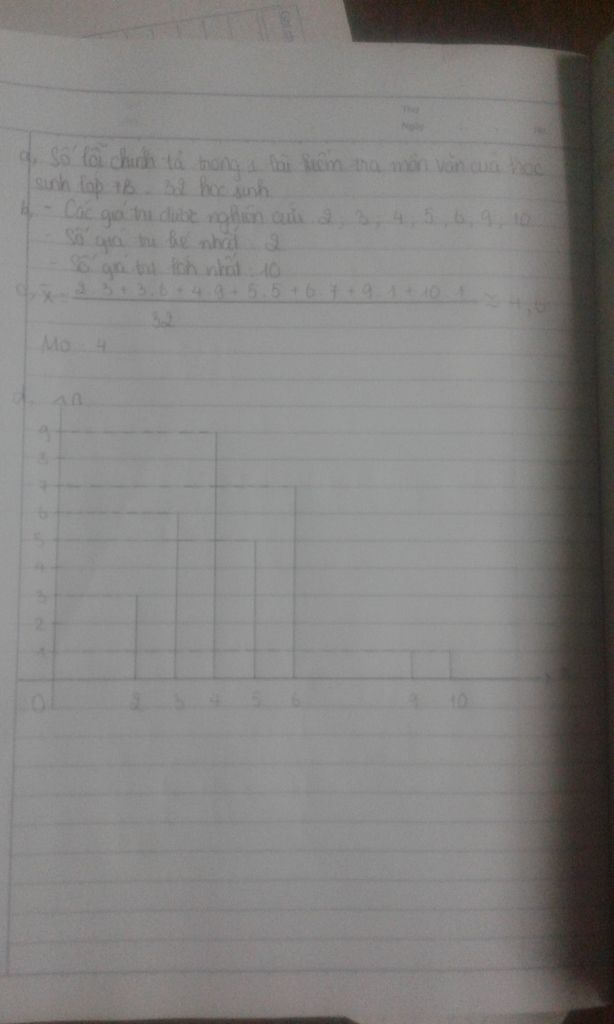 Thứ
Ngày
a, Số lỗi chính tả trong 1 bài kiểm tra môn văn của học
sinh lớp 7B. 32 học sinh
b, - Các giá trị được nghiên cứu 2, 3, 4, 5, 6, 9, 10
- Số giá trị bé nhất: 2
- Số giá trị lớn nhất: 10
c, x̄ = 2.3+3.6+4.9+5.5+6.7+9.1+10.1 ≈
32
Mo: 4
d, n
9
8
7
6
5
4
3
2
1
O 2 3 4 5 6 9 10